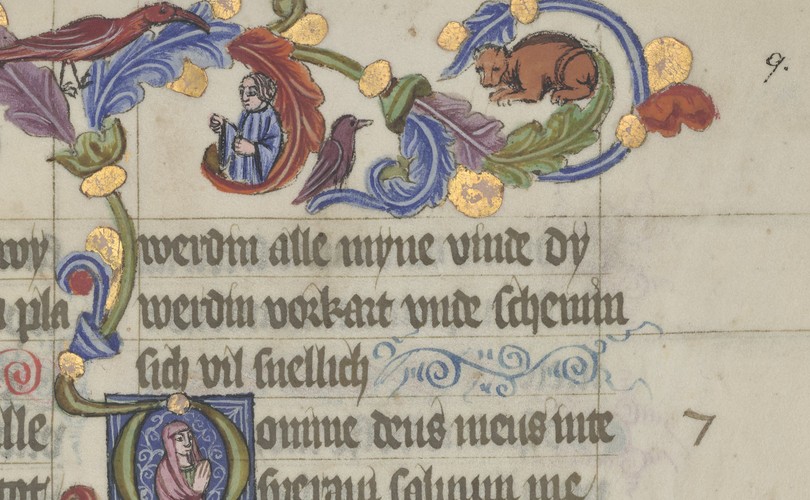 9.
wy werdin alle myne vinde dy
pla werdin vorkart vnde schemin
sich vil snellich
alle Domine deus meus in te
7
tot speraui saluum me